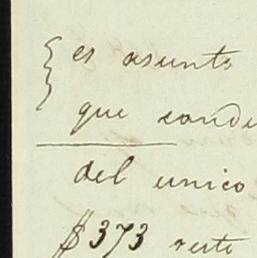 es asunto
que
del unico
$373 resto